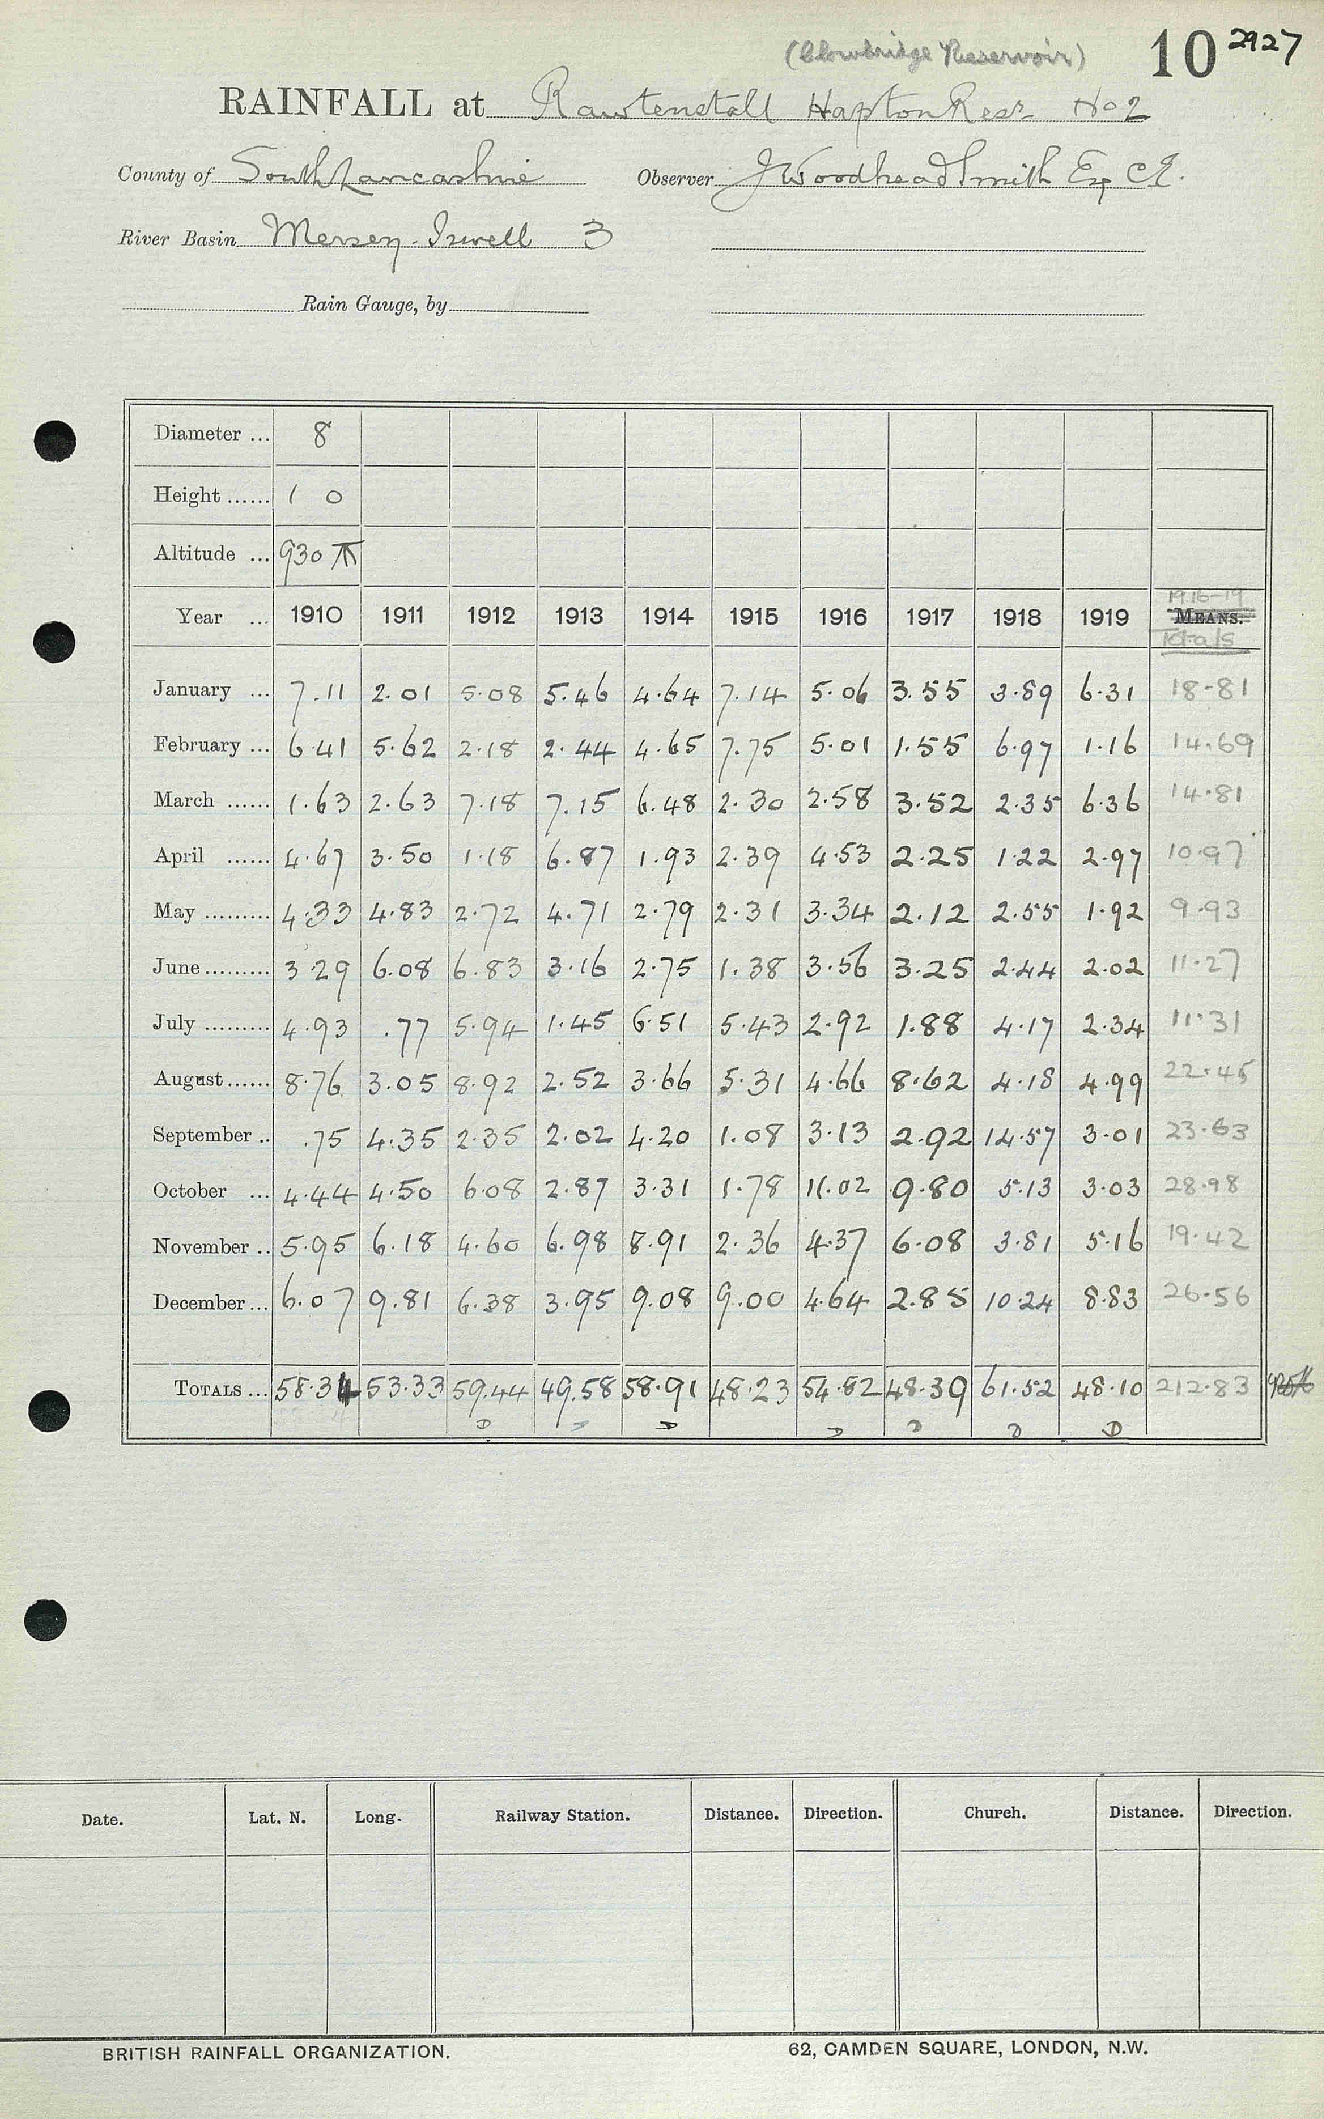 (Clowbridge Reservoir) 10 2927
RAINFALL at Rawtenstall Hapton Resr No 2
County of South Lancashire Observer J Woodhead Smith Esq C.E.
River Basin Mersey-Irwell 3
Rain Gauge, by
Diameter ... 8
Height ...... 1 0
Altitude ... 930
Year ... 1910 1911 1912 1913 1914 1915 1916 1917 1918 1919 1916-19 MEANS. Totals
January ... 7.11 2.01 5.08 5.46 4.64 7.14 5.06 3.55 3.89 6.31 18.81
February ... 6.41 5.62 2.18 2.44 4.65 7.75 5.01 1.55 6.97 1.16 14.69
March ...... 1.63 2.63 7.18 7.15 6.48 2.30 2.58 3.52 2.35 6.36 14.81
April ...... 4.67 3.50 1.18 6.87 1.93 2.39 4.53 2.25 1.22 2.97 10.97
May ......... 4.33 4.83 2.72 4.71 2.79 2.31 3.34 2.12 2.55 1.92 9.93
June ......... 3.29 6.08 6.83 3.16 2.75 1.38 3.56 3.25 2.44 2.02 11.27
July ......... 4.93 .77 5.94 1.45 6.51 5.43 2.92 1.88 4.17 2.34 11.31
August ...... 8.76 3.05 8.92 2.52 3.66 5.31 4.66 8.62 4.18 4.99 22.45
September .. .75 4.35 2.35 2.02 4.20 1.08 3.13 2.92 14.57 3.01 23.63
October ... 4.44 4.50 6.08 2.87 3.31 1.78 11.02 9.80 5.13 3.03 28.98
November .. 5.95 6.18 4.60 6.98 8.91 2.36 4.37 6.08 3.81 5.16 19.42
December ... 6.07 9.81 6.38 3.95 9.08 9.00 4.64 2.85 10.24 8.83 26.56
TOTALS ... 58.34 53.33 59.44 49.58 58.91 48.23 54.82 48.39 61.52 48.10 212.83
D D D D D D D
Date. Lat. N. Long. Railway Station. Distance. Direction. Church. Distance. Direction.
BRITISH RAINFALL ORGANIZATION. 62, CAMDEN SQUARE, LONDON, N.W.